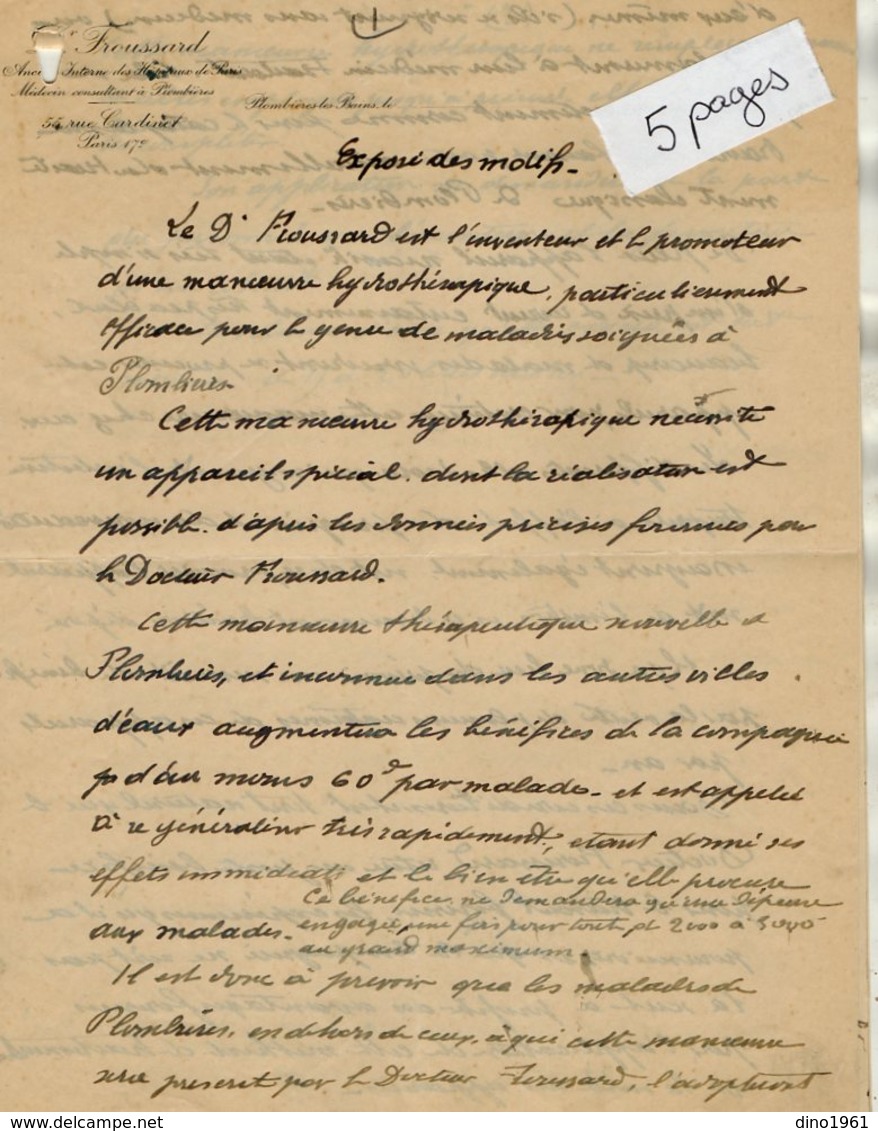 Dr Froussard
Ancien Interne des Hôpitaux de Paris
Médecin consultant à Plombières
54, rue Cardinet
Paris 17e
Plombières-les-Bains, le
1
5 pages
Exposé des motifs.
Le Dr Froussard est l'inventeur et le promoteur
d'une manœuvre hydrothérapique, particulièrement
efficace pour le genre de maladies soignées à
Plombières
Cette manœuvre hydrothérapique nécessite
un appareil spécial, dont la réalisation est
possible d'après les données précises fournies par
le Docteur Froussard.
Cette manœuvre thérapeutique nouvelle à
Plombières, et inconnue dans les autres villes
d'eaux augmentera les bénéfices de la compagnie
d'au moins 60 par malade. et est appelée
à se généraliser très rapidement, étant donné ses
effets immédiats et le bien être qu'elle procure
aux malades. Ce bénéfice ne demandera qu'une dépense
engagée une fois pour toute de 2000 à 3000
au grand maximum.
Il est donc à prévoir que les malades de
Plombières, en dehors de ceux, à qui cette manœuvre
sera prescrit par le Docteur Froussard, l'adopteront
dino1961